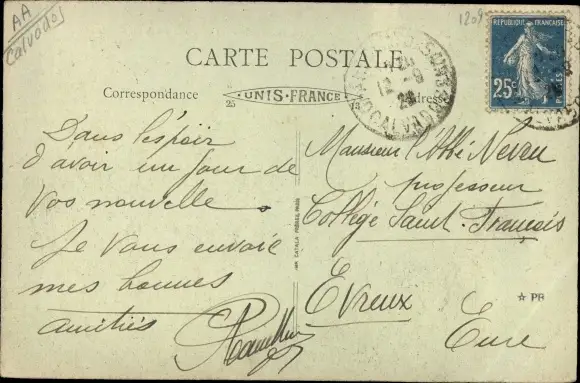 AA
Calvados
1209
RÉPUBLIQUE FRANÇAISE
25c
POSTES
CARTE POSTALE
Correspondance
25 UNIS-FRANCE 73
Adresse
CALVADOS
Dans l'espoir
d'avoir un jour de
vos nouvelles
Je vous envoie
mes bonnes
amitiés
Monsieur l'Abbé Neveu
professeur
Collège Saint-François
Evreux
Eure
IMP. CATALA FRÈRES, PARIS
★ PR